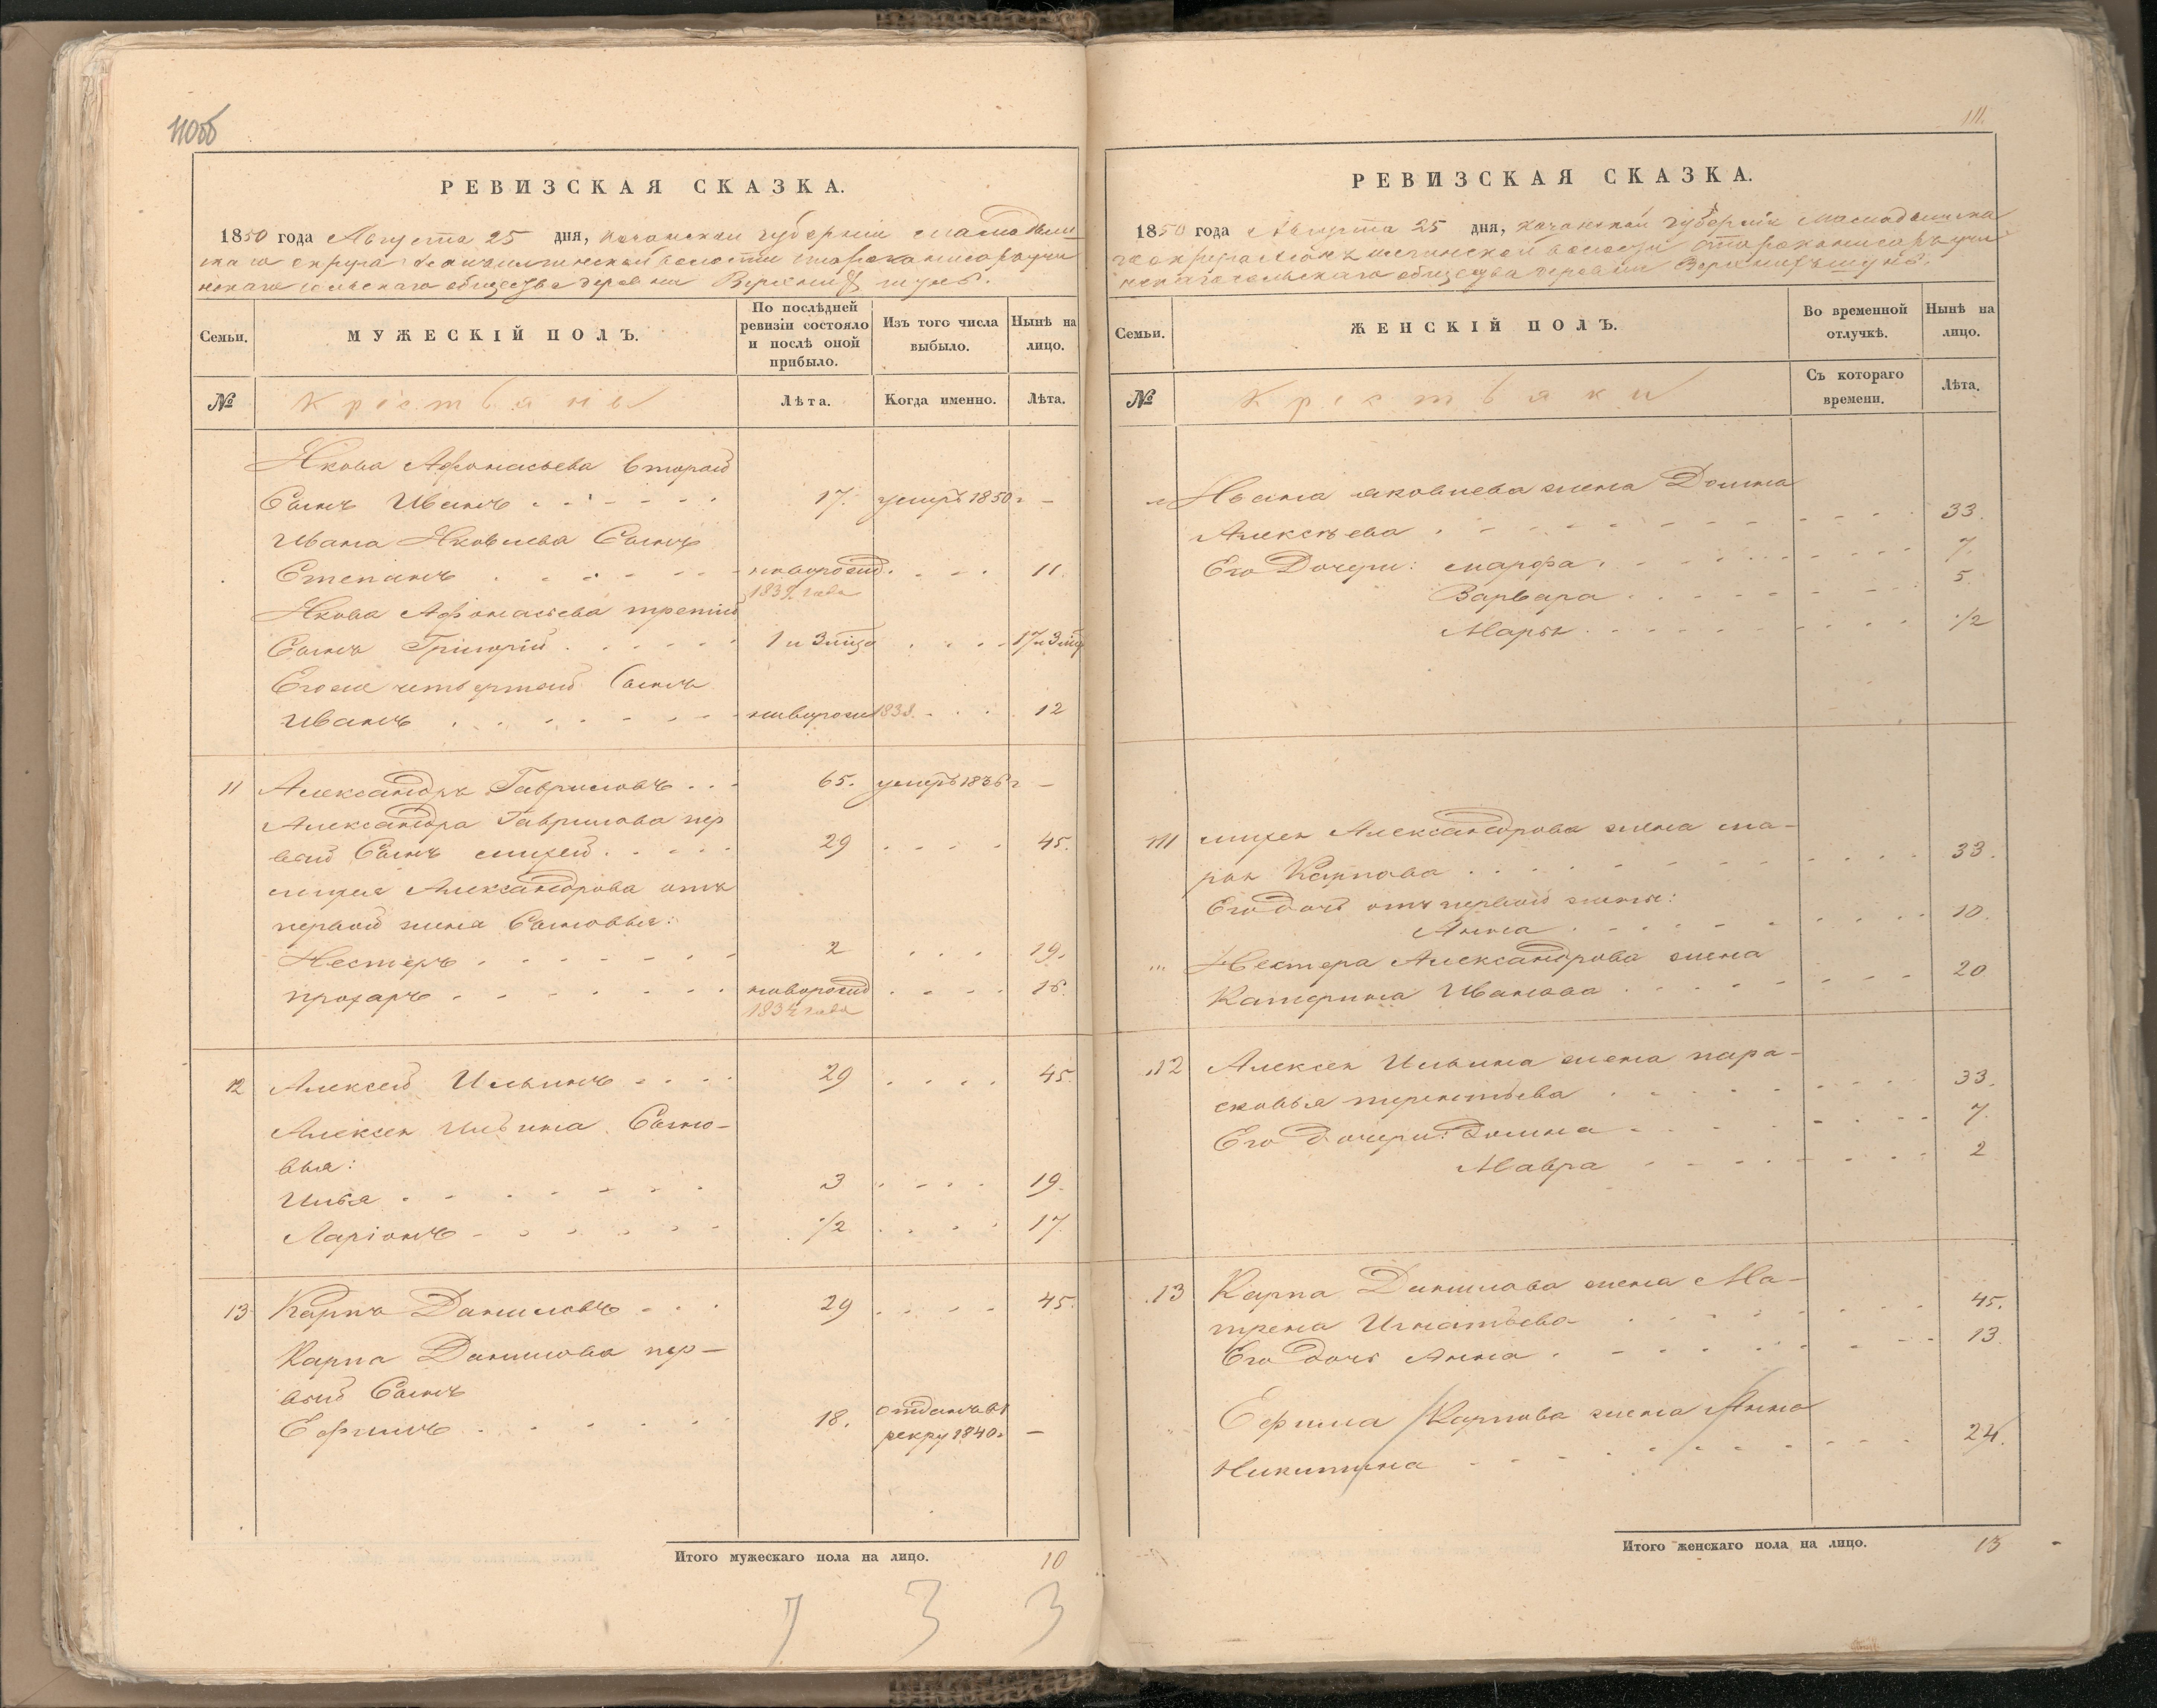 110об
РЕВИЗСКАЯ СКАЗКА.
1850 года Августа 25 дня, Казанской губернии Мамадыш-
скаго округа волости
скаго сельскаго общества деревни Верхний шунь.
Семьи.
МУЖЕСКІЙ ПОЛЪ.
По послѣдней
ревизіи состояло
и послѣ оной
прибыло.
Изъ того числа
выбыло.
Нынѣ на
лицо.
№
Крестьяне
Лѣта.
Когда именно.
Лѣта.
Якова Афонасьева второй
Сынъ Иванъ 17. умеръ 1850 г –
Ивана Яковлева Сынъ
Степанъ новорожд. 11.
1839 года
Якова Афонасьева третий
Сынъ Григорій 1 и 3 мѣца 17 и 3 мѣц
Егоже четвертой Сынъ
Иванъ новорож 1838. 12
11 Александръ Гавриловъ 65. умеръ 1836 г –
Александра Гаврилова пер
вый Сынъ михей 29 45.
михея Александрова отъ
первой жены Сыновья:
Нестеръ 2 19.
прохаръ новорожд 16.
1834 года
12 Алексей Ильинъ 29 45.
Алексея Ильина Сыно-
вья:
Илья 3 19.
Ларіонъ 1/2 17.
13 Карпъ Даниловъ 29 45.
Карпа Данилова пер-
вый Сынъ
Ефимъ 18. отданъ въ
рекру 1840 г –
Итого мужескаго пола на лицо. 10
7 3 3
111.
РЕВИЗСКАЯ СКАЗКА.
1850 года Августа 25 дня, казанской губерніи Мамадышска
го округа волости
скаго сельскаго общества деревни Верхний шунь.
Семьи.
ЖЕНСКІЙ ПОЛЪ.
Во временной
отлучкѣ.
Нынѣ на
лицо.
№
Крестьянки
Съ котораго
времени.
Лѣта.
Ивана яковлева жена Домна
Алексѣева 33.
Его Дочери: марфа 7.
Варвара 5.
Марья 1/2
11 михея Александрова жена ма-
рья Карпова 33.
Его дочь отъ первой жены:
Анна 10.
Нестера Александрова жена
Катерина Иванова 20
12 Алексея Ильина жена пара-
сковья терентьева 33.
Его дочери: Домна 7.
Мавра 2
13 Карпа Данилова жена Ма-
трена Игнатьева 45.
Его дочь Анна 13.
Ефима Карпова жена Анна
Никитина 24.
Итого женскаго пола на лицо. 13